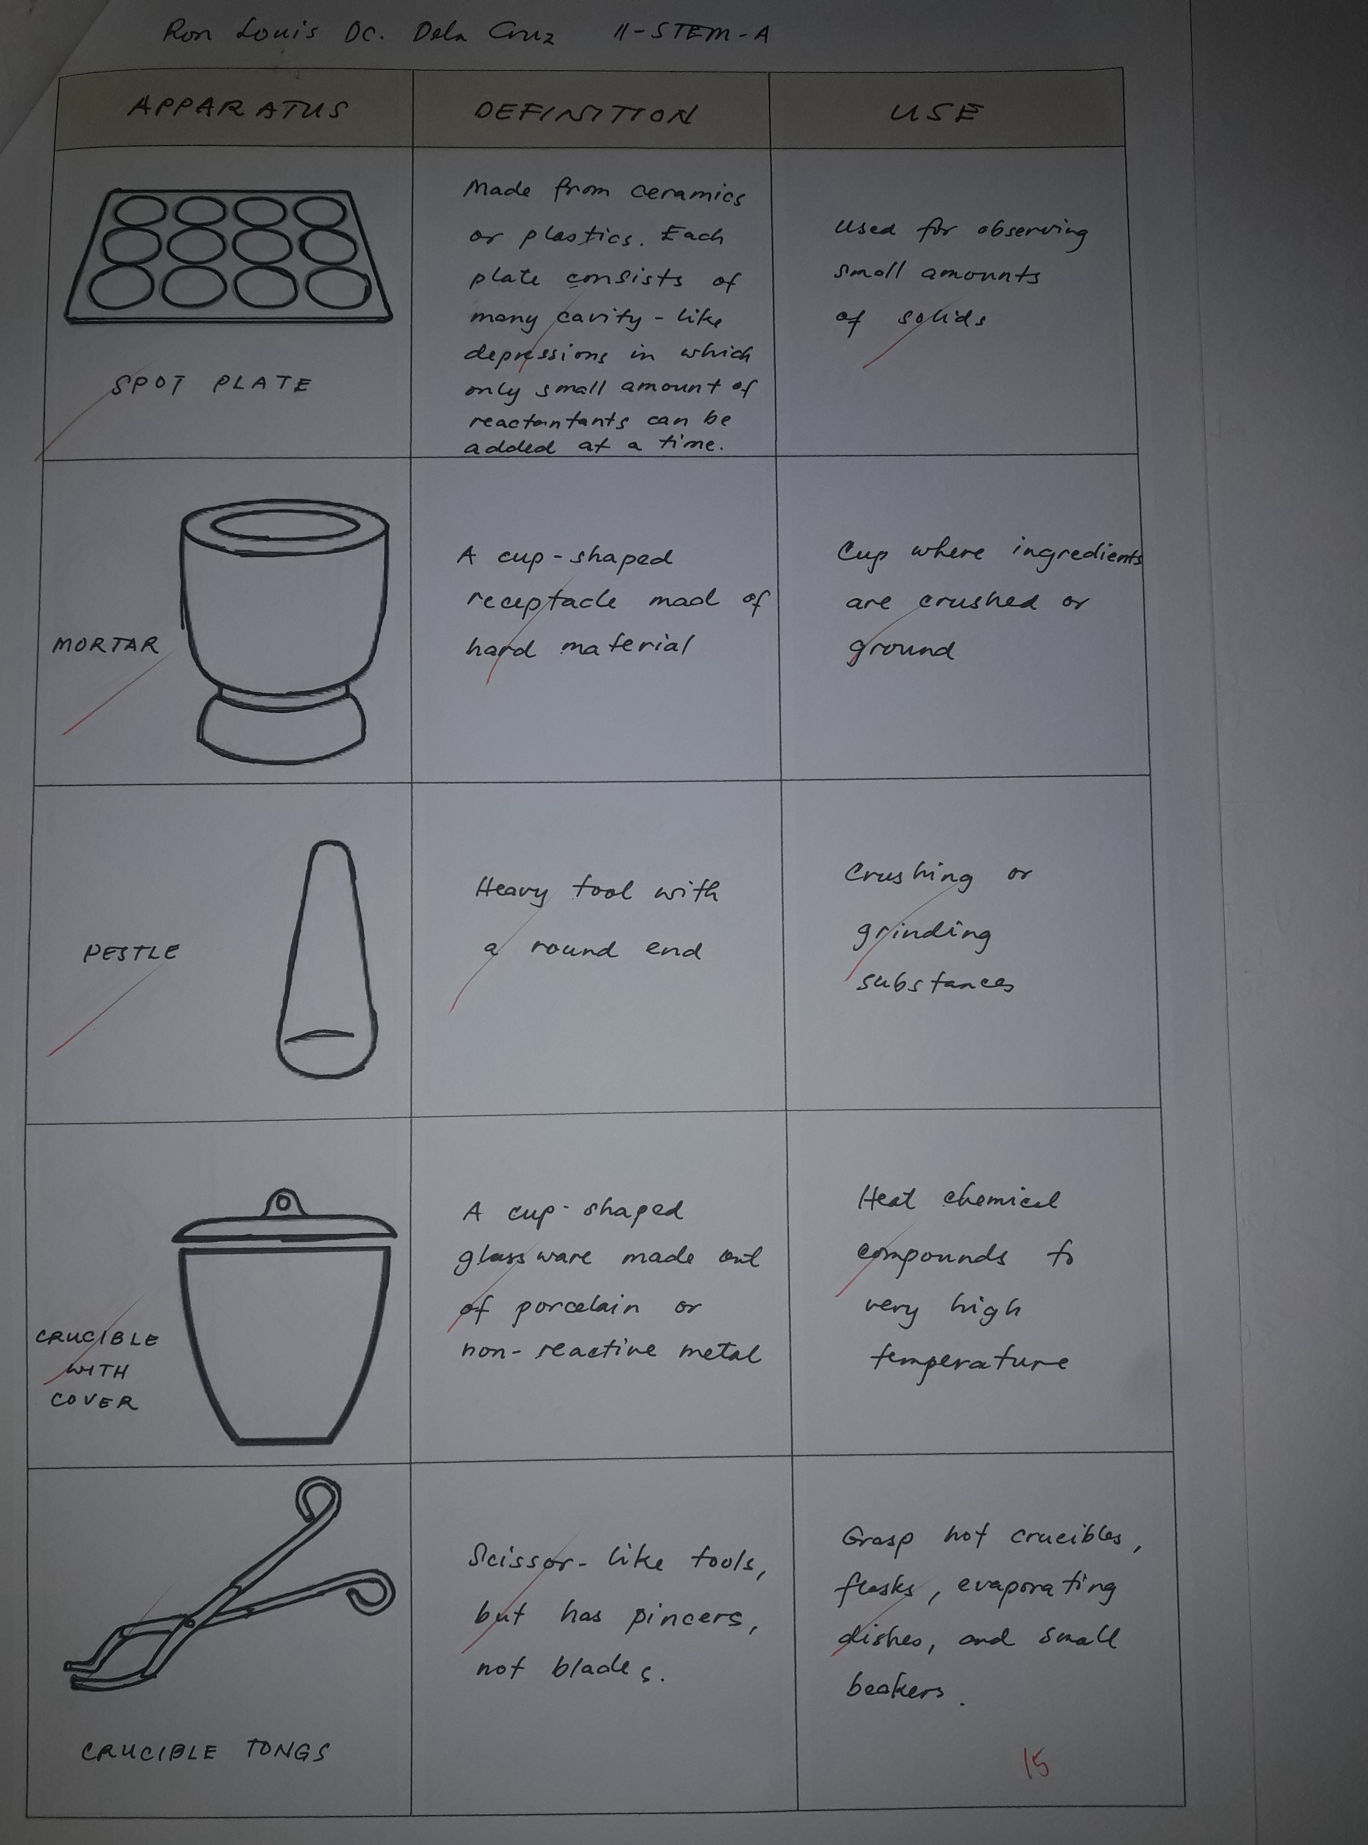 Ron Louis DC. Dela Cruz 11-STEM-A
APPARATUS DEFINITION USE
SPOT PLATE
Made from ceramics
or plastics. Each
plate consists of
many cavity-like
depressions in which
only small amount of
reactantants can be
added at a time.
Used for observing
small amounts
of solids
MORTAR
A cup-shaped
receptacle mad of
hard material
Cup where ingredients
are crushed or
ground
PESTLE
Heavy tool with
a round end
Crushing or
grinding
substances
CRUCIBLE
WITH
COVER
A cup-shaped
glassware made out
of porcelain or
non-reactive metal
Heat chemical
compounds to
very high
temperature
CRUCIBLE TONGS
Scissor-like tools,
but has pincers,
not blades.
Grasp hot crucibles,
flasks, evaporating
dishes, and small
beakers.
15